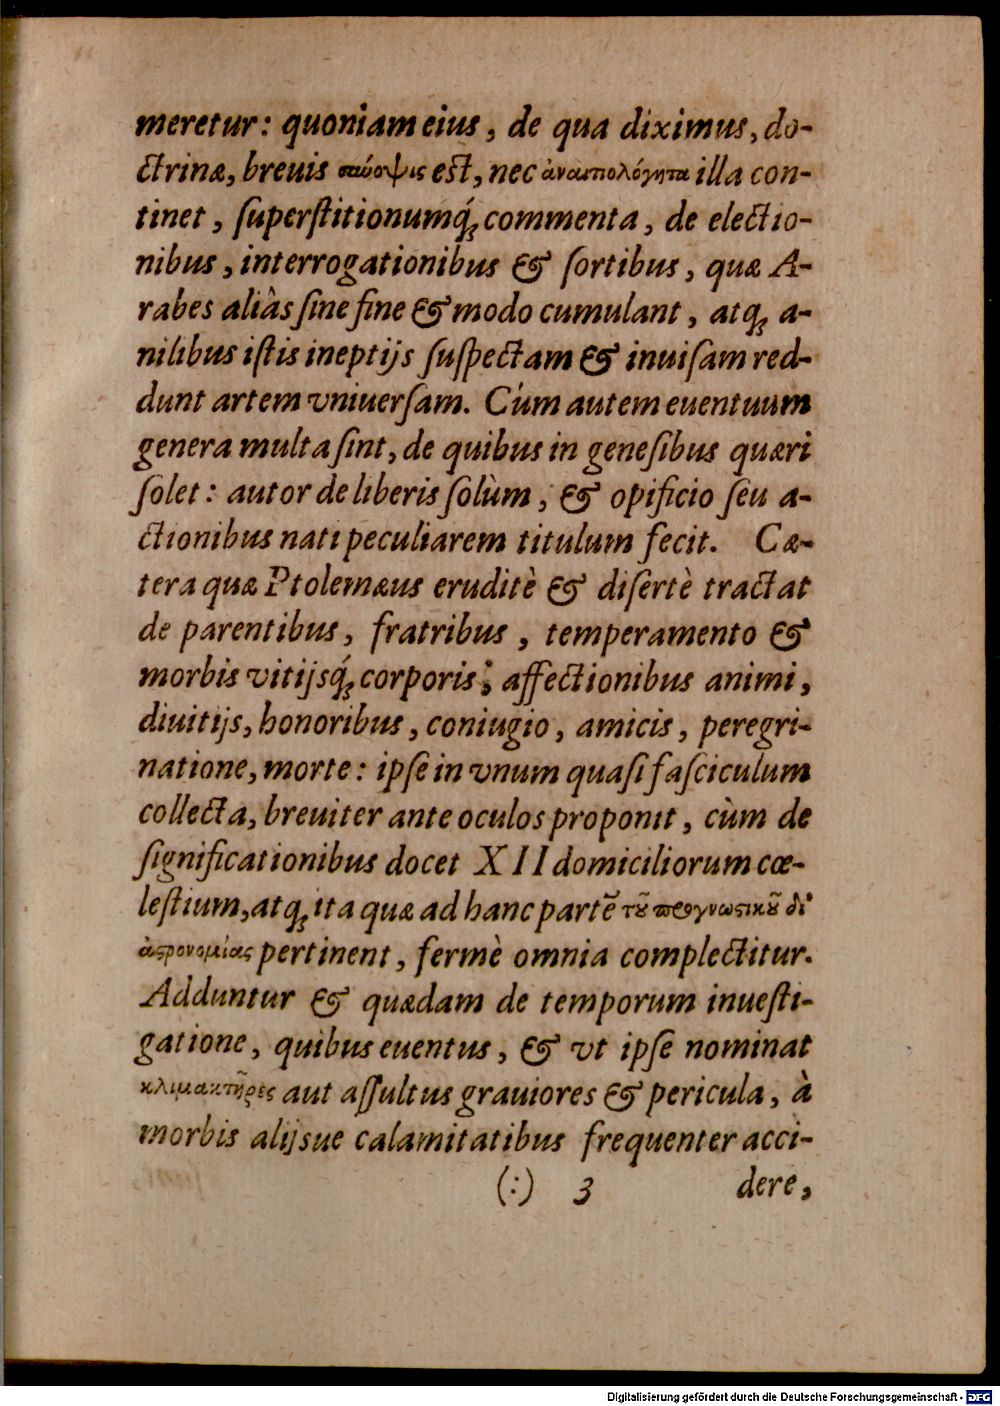 meretur: quoniam eius, de qua diximus, do-
ctrinæ, breuis σύνοψις est, nec ἀναπολόγητα illa con-
tinet, ſuperſtitionumq́; commenta, de electio-
nibus, interrogationibus & ſortibus, quæ A-
rabes aliàs ſine fine & modo cumulant, atq; a-
nilibus iſtis ineptijs ſuſpectam & inuiſam red-
dunt artem vniuerſam. Cùm autem euentuum
genera multa ſint, de quibus in geneſibus quæri
ſolet: autor de liberis ſolùm, & opificio ſeu a-
ctionibus nati peculiarem titulum fecit. Cæ-
tera quæ Ptolemæus eruditè & diſertè tractat
de parentibus, fratribus, temperamento &
morbis vitijsq́; corporis; affectionibus animi,
diuitijs, honoribus, coniugio, amicis, peregri-
natione, morte: ipſe in vnum quaſi faſciculum
collecta, breuiter ante oculos proponit, cùm de
ſignificationibus docet XII domiciliorum cœ-
leſtium, atq; ita quæ ad hanc partẽ τȣ͂ προγνωϛικȣ͂ δι'
ἀϛρονομίας pertinent, fermè omnia complectitur.
Adduntur & quædam de temporum inueſti-
gatione, quibus euentus, & vt ipſe nominat
κλιμακτῆρες aut aſſultus grauiores & pericula, à
morbis alijsue calamitatibus frequenter acci-
(:) 3 dere,
Digitalisierung gefördert durch die Deutsche Forschungsgemeinschaft - DFG